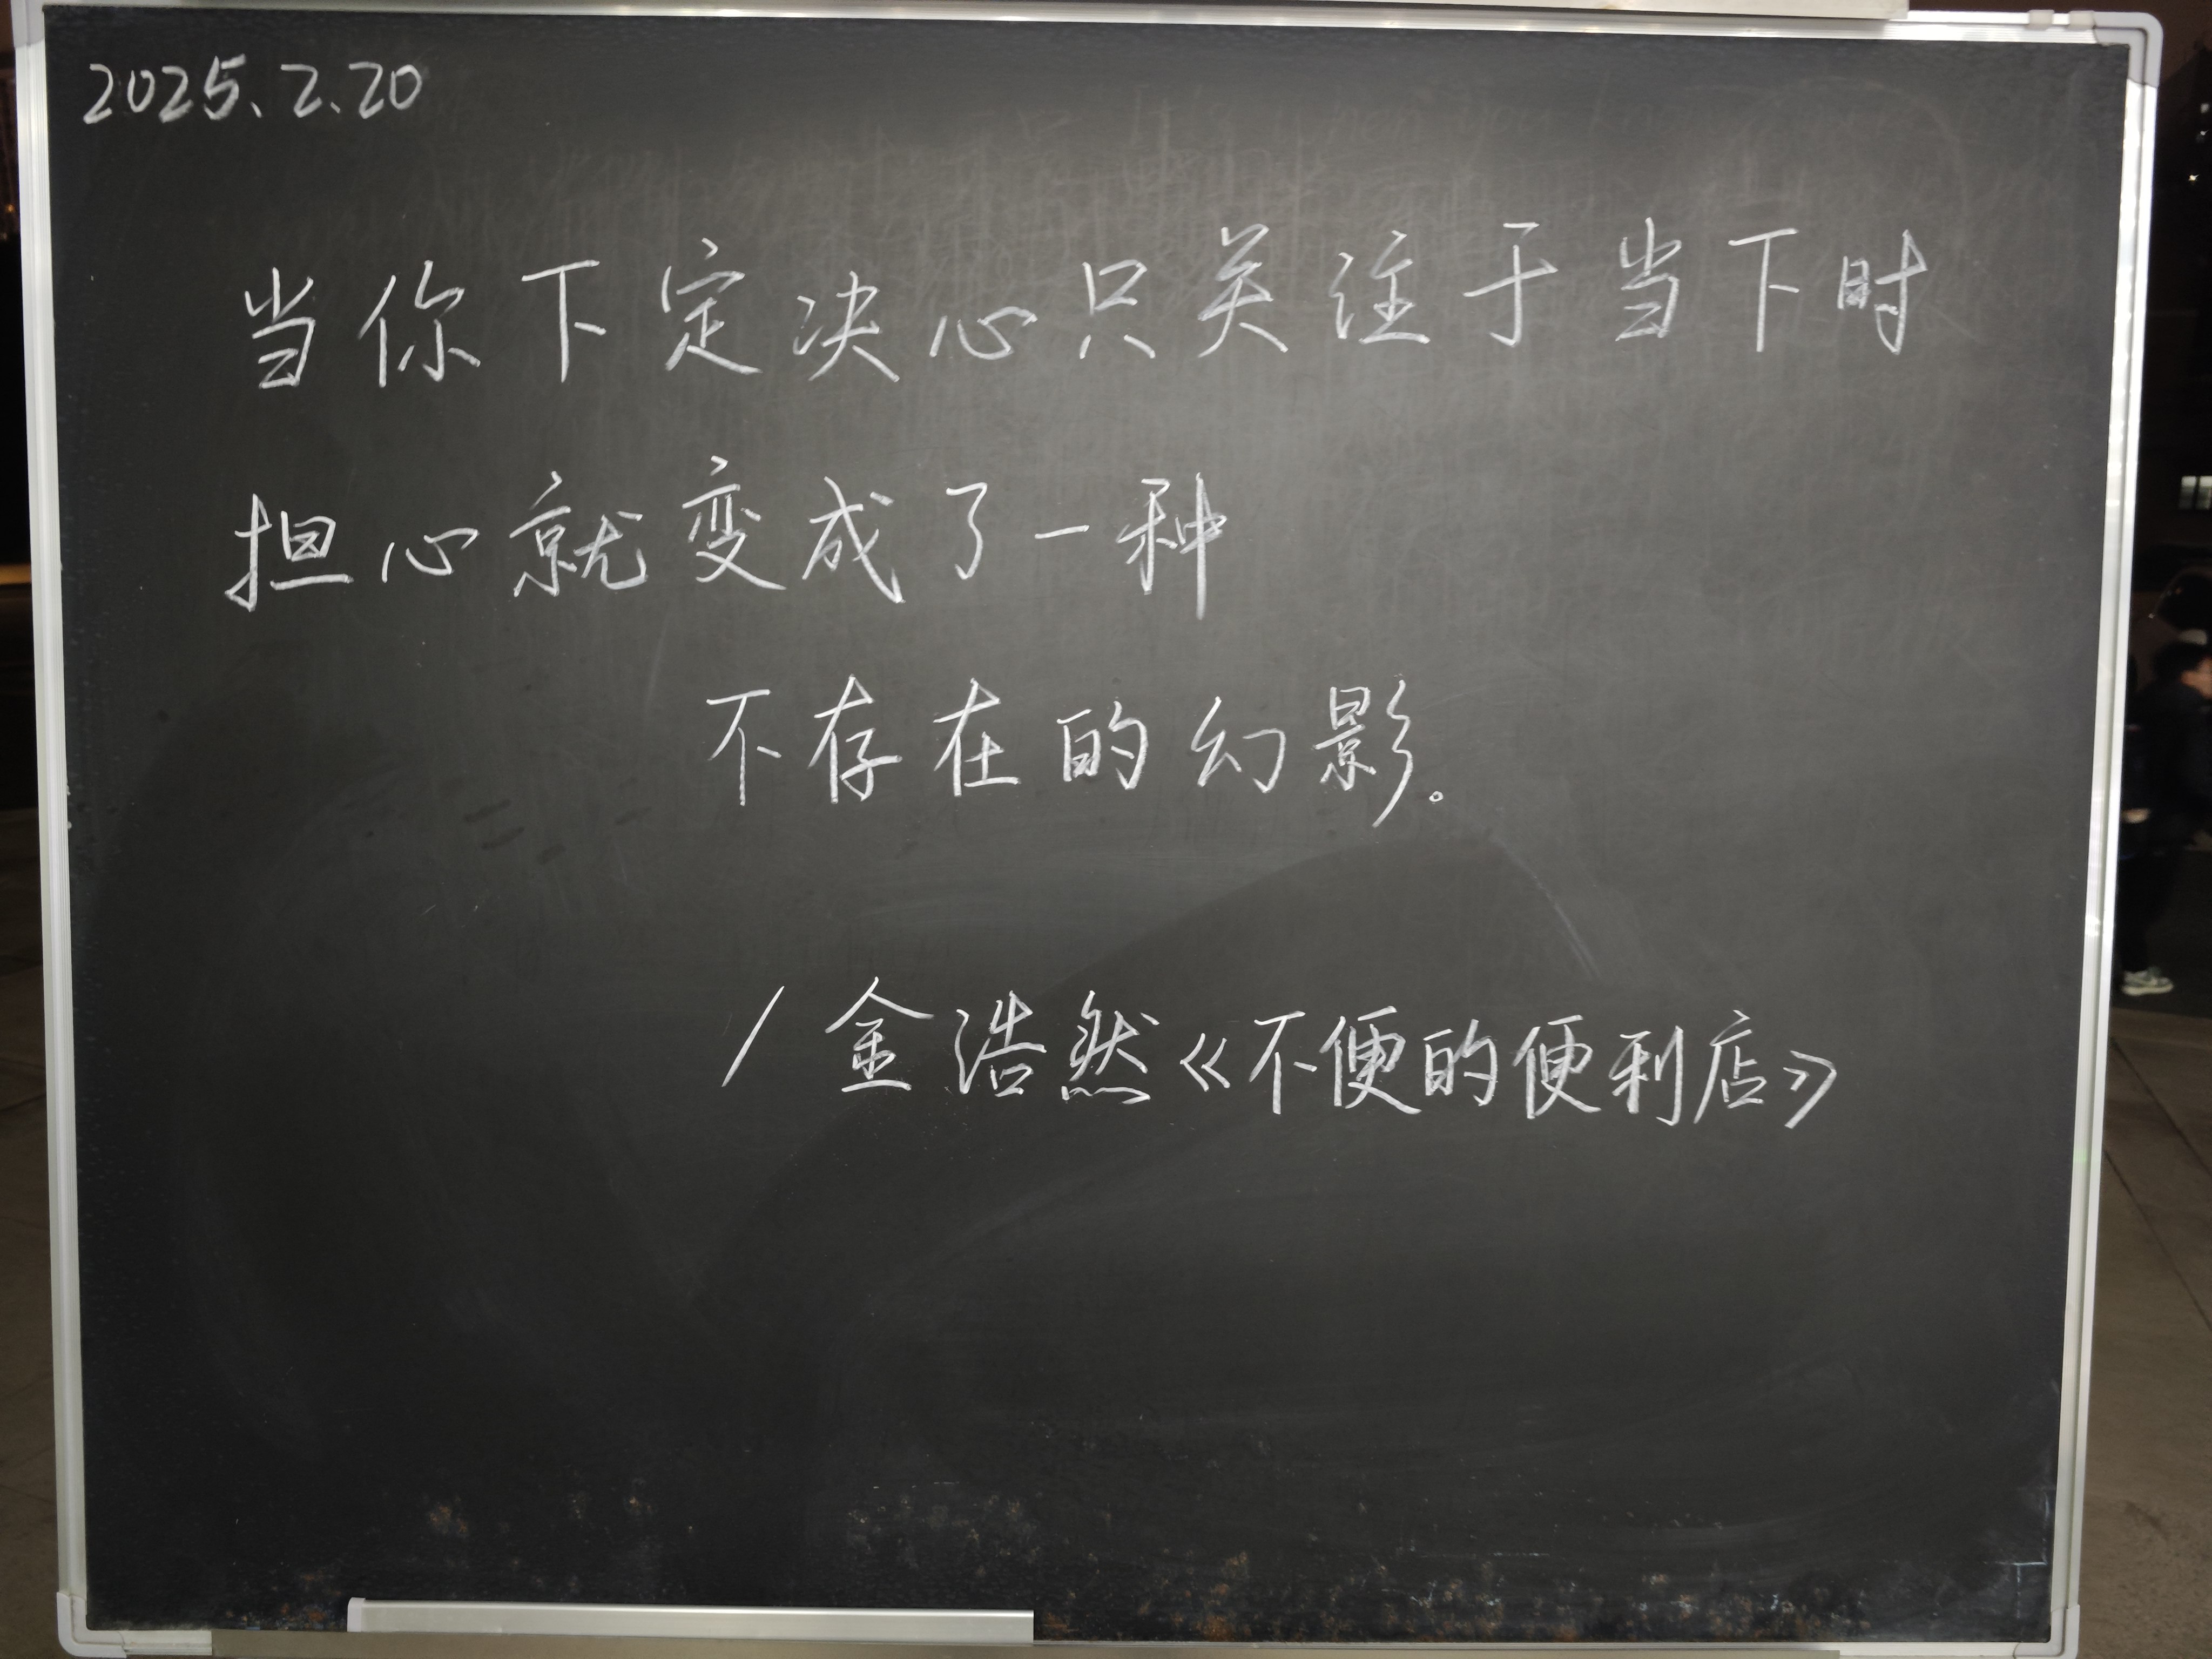 2025.2.20
当你下定决心只关注于当下时
担心就变成了一种
不存在的幻影。
/金浩然《不便的便利店》